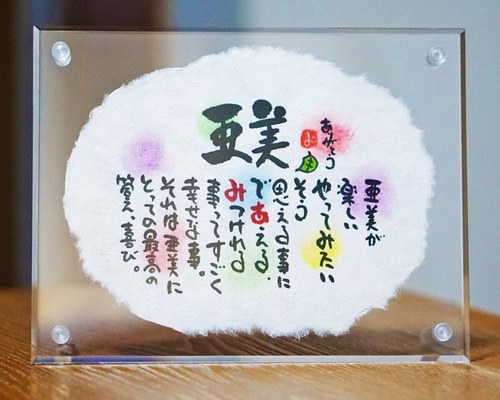 亜美
ありがとう
亜美が
楽しい
やってみたい
そう
思える事に
であえる、
みつけれる
事ってすごく
幸せな事。
それは亜美に
とっての最高の
答え、喜び。